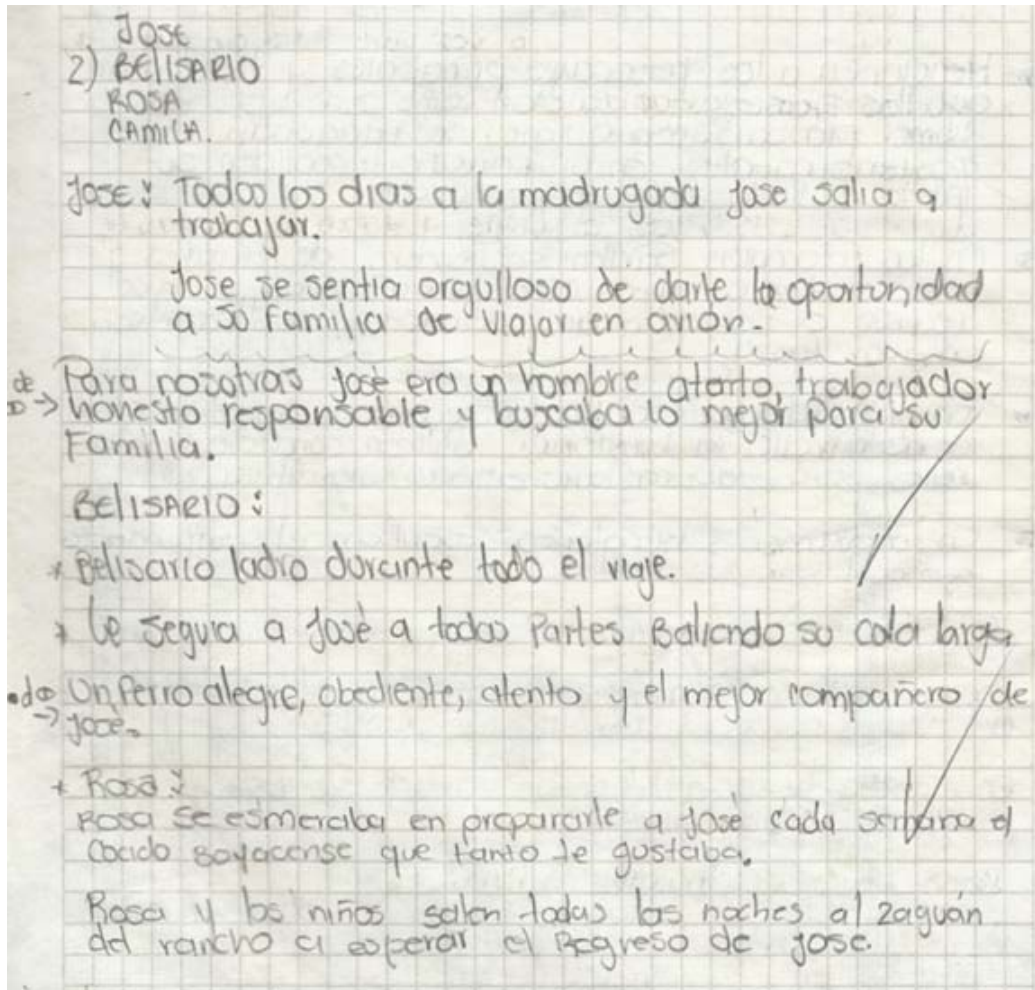 JOSE
2) BELISARIO
ROSA
CAMILA.
JOSE: Todos los dias a la madrugada jose salia a
trabajar.
Jose se sentia orgulloso de darle la oportunidad
a su familia de viajar en avión.
de Para nosotras josé era un hombre atento, trabajador
D → honesto responsable y buscaba lo mejor para su
Familia.
BELISARIO:
* Belisario ladro durante todo el viaje.
* le seguia a josé a todas Partes Batiendo su cola larga
Un Perro alegre, obediente, atento y el mejor compañero de
→ jose.
* Rosa:
Rosa se esmeraba en prepararle a josé cada semana el
Cocido Boyacense que tanto le gustaba.
Rosa y los niños salen todas las noches al zaguán
del rancho a esperar el Regreso de jose.